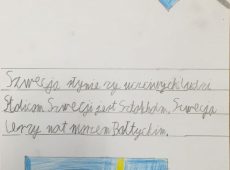 Szwecja słynie zy uczciwych ludzi
Stolicom Szwecji jest Sztokholm. Szwecja
lerzy nat morzem Bałtyckim.